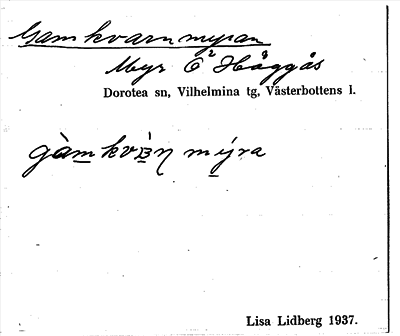 Gamkvarnmyran
Myr Ö² Häggås
Dorotea sn, Vilhelmina tg, Västerbottens l.
myra
Lisa Lidberg 1937.